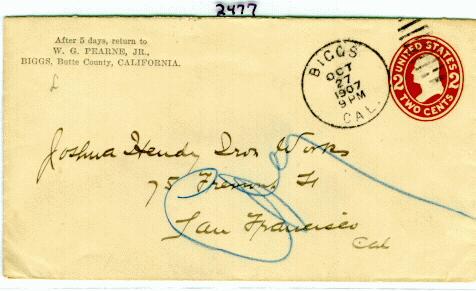 2477
After 5 days, return to
W. G. PEARNE, JR.,
BIGGS, Butte County, CALIFORNIA.
BIGGS
OCT
27
1907
9 PM
CAL.
UNITED STATES
2 2
TWO CENTS
Joshua Hendy Iron Works
75 Fremont St
San Francisco
Cal